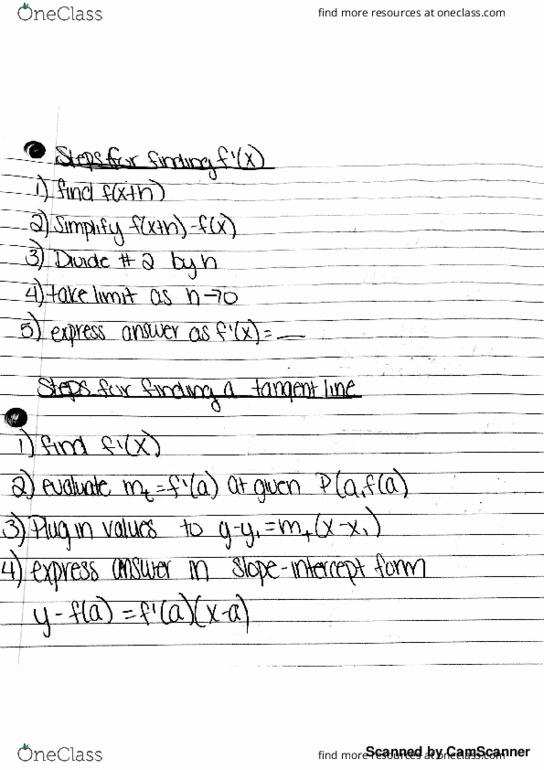 OneClass
find more resources at oneclass.com
Steps for finding f'(x)
1) find f(x+h)
2) Simplify f(x+h)-f(x)
3) Divide # 2 by h
4) take limit as h→0
5) express answer as f'(x)= __
Steps for finding a tangent line
1) find f'(x)
2) evaluate mt=f'(a) at given P(a,f(a)
3) Plug in values to y-y1=mt(x-x1)
4) express answer in slope-intercept form
y-f(a)=f'(a)(x-a)
OneClass
find more resources at oneclass.com
Scanned by CamScanner